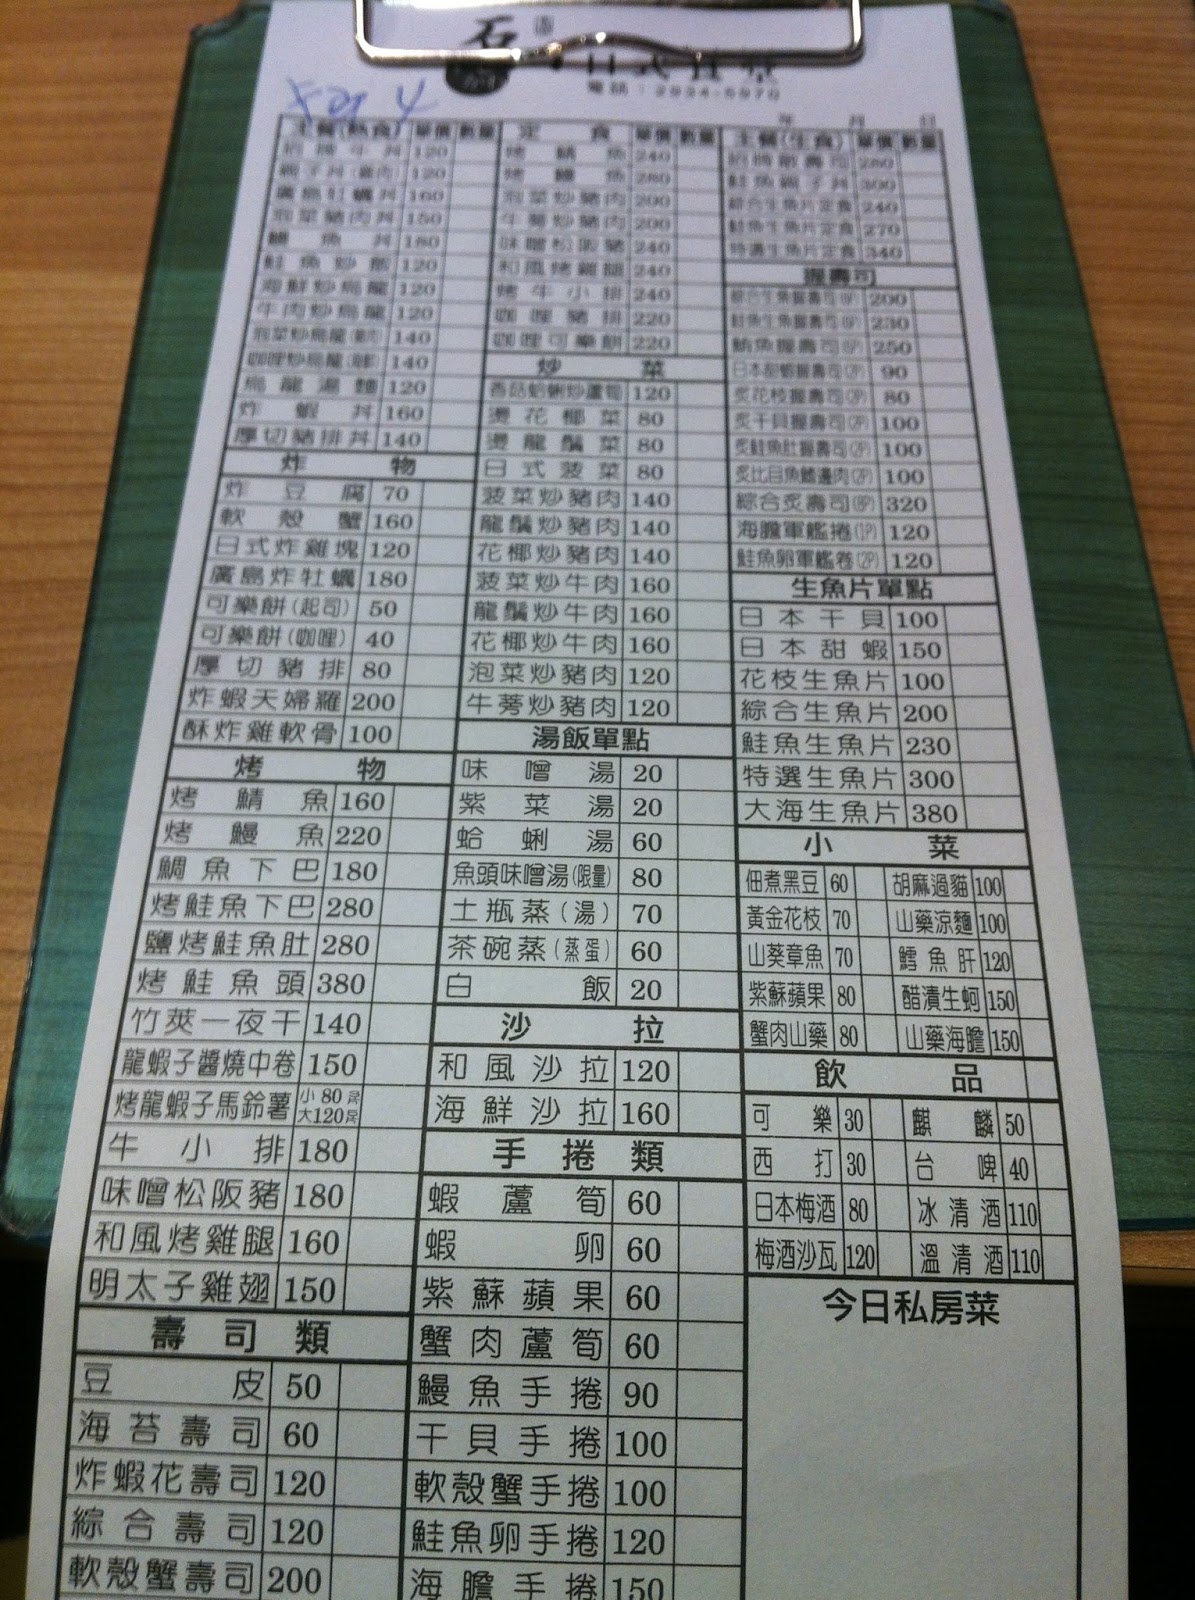 石
日式食堂
電話：2924-5970
年 月 日
主餐(熱食) 單價 數量
招牌牛丼 120
親子丼(雞肉) 120
廣島牡蠣丼 160
泡菜豬肉丼 150
鰻魚丼 180
鮭魚炒飯 120
海鮮炒烏龍 120
牛肉炒烏龍 120
140
140
烏龍湯麵 120
炸蝦丼 160
厚切豬排丼 140
炸物
炸豆腐 70
軟殼蟹 160
日式炸雞塊 120
廣島炸牡蠣 180
可樂餅(起司) 50
可樂餅(咖哩) 40
厚切豬排 80
炸蝦天婦羅 200
酥炸雞軟骨 100
烤物
烤鯖魚 160
烤鰻魚 220
鯛魚下巴 180
烤鮭魚下巴 280
鹽烤鮭魚肚 280
烤鮭魚頭 380
竹莢一夜干 140
龍蝦子醬燒中卷 150
烤龍蝦子馬鈴薯 小80 大120
牛小排 180
味噌松阪豬 180
和風烤雞腿 160
明太子雞翅 150
壽司類
豆皮 50
海苔壽司 60
炸蝦花壽司 120
綜合壽司 120
軟殼蟹壽司 200
定食 單價 數量
烤鯖魚 240
烤鰻魚 280
泡菜炒豬肉 200
牛蒡炒豬肉 200
味噌松阪豬 240
和風烤雞腿 240
烤牛小排 240
咖哩豬排 220
咖哩可樂餅 220
炒菜
香菇蛤蜊炒蘆筍 120
燙花椰菜 80
燙龍鬚菜 80
日式菠菜 80
菠菜炒豬肉 140
龍鬚炒豬肉 140
花椰炒豬肉 140
菠菜炒牛肉 160
龍鬚炒牛肉 160
花椰炒牛肉 160
泡菜炒豬肉 120
牛蒡炒豬肉 120
湯飯單點
味噌湯 20
紫菜湯 20
蛤蜊湯 60
魚頭味噌湯(限量) 80
土瓶蒸(湯) 70
茶碗蒸(蒸蛋) 60
白飯 20
沙拉
和風沙拉 120
海鮮沙拉 160
手捲類
蝦蘆筍 60
蝦卵 60
紫蘇蘋果 60
蟹肉蘆筍 60
鰻魚手捲 90
干貝手捲 100
軟殼蟹手捲 100
鮭魚卵手捲 120
海膽手捲 150
主餐(生食) 單價 數量
招牌散壽司 280
鮭魚親子丼 300
綜合生魚片定食 240
鮭魚生魚片定食 270
特選生魚片定食 340
握壽司
綜合生魚握壽司 200
鮭魚生魚握壽司 230
鮪魚握壽司 250
日本甜蝦握壽司(2P) 90
炙花枝握壽司(2P) 80
炙干貝握壽司(2P) 100
炙鮭魚肚握壽司(2P) 100
炙比目魚鰭邊肉(2P) 100
綜合炙壽司(8P) 320
海膽軍艦捲(1P) 120
鮭魚卵軍艦卷(2P) 120
生魚片單點
日本干貝 100
日本甜蝦 150
花枝生魚片 100
綜合生魚片 200
鮭魚生魚片 230
特選生魚片 300
大海生魚片 380
小菜
佃煮黑豆 60 胡麻過貓 100
黃金花枝 70 山藥涼麵 100
山葵章魚 70 鱈魚肝 120
紫蘇蘋果 80 醋漬生蚵 150
蟹肉山藥 80 山藥海膽 150
飲品
可樂 30 麒麟 50
西打 30 台啤 40
日本梅酒 80 冰清酒 110
梅酒沙瓦 120 溫清酒 110
今日私房菜